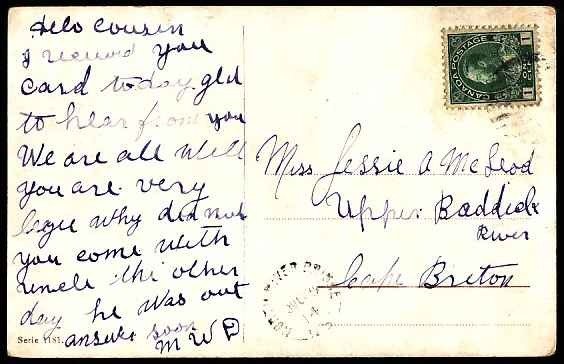 Helo Cousin
I received you
Card today gld
to hear from you
We are all Well
you are very
why did not
you come with
uncle the other
day he was out
answer soon
M W D
Serie 1181.
CANADA POSTAGE
1 CENT 1
Miss Jessie A McLeod
Upper Baddick
River
Cape Breton